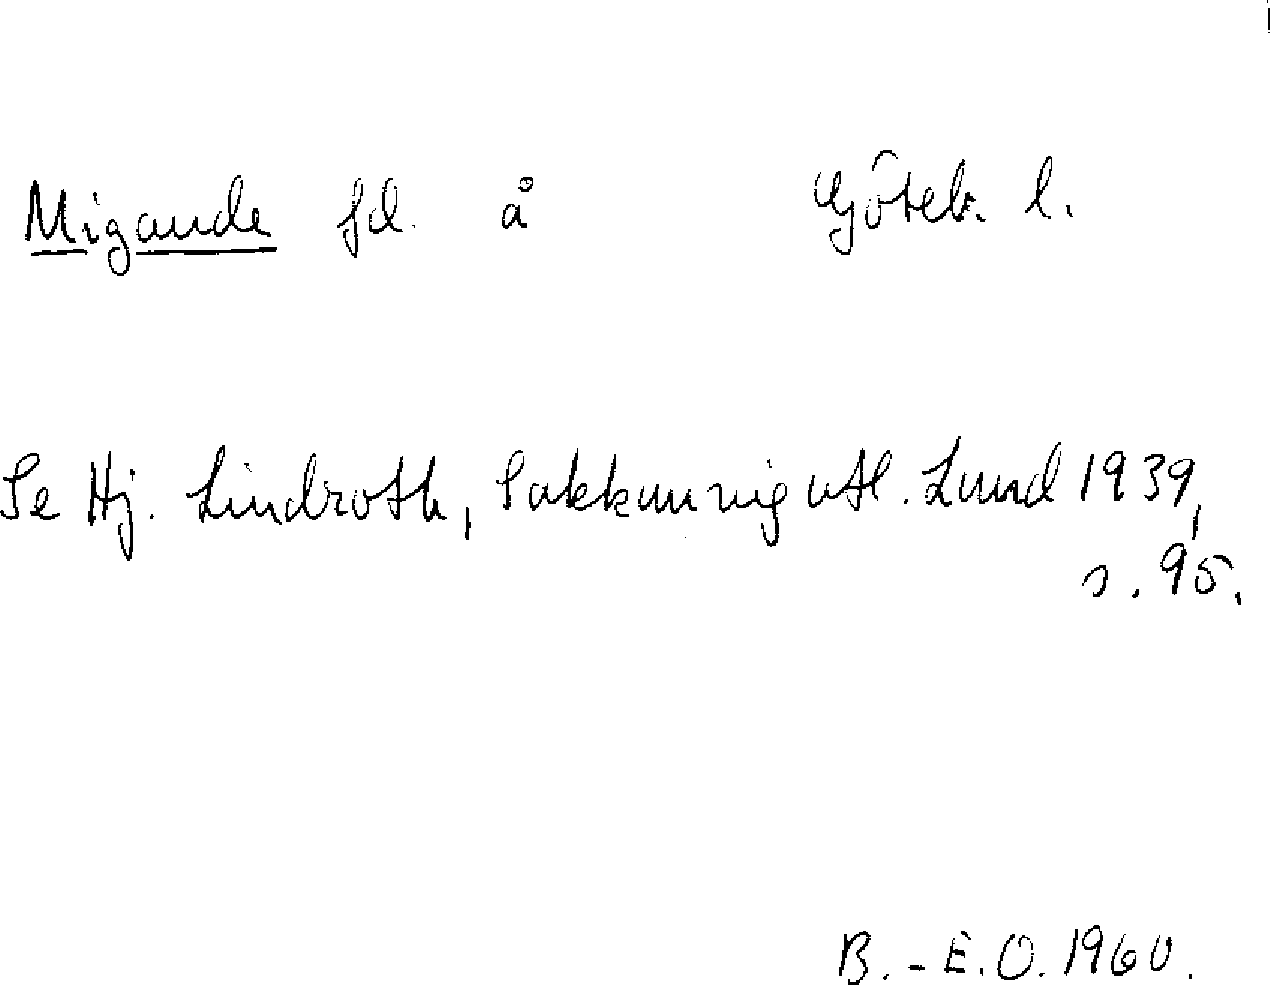 Migande fd. å Göteb. l.
Se Hj. Lindroth, Sakkunnigutl. Lund 1939,
s. 95.
B.-E.O. 1960.